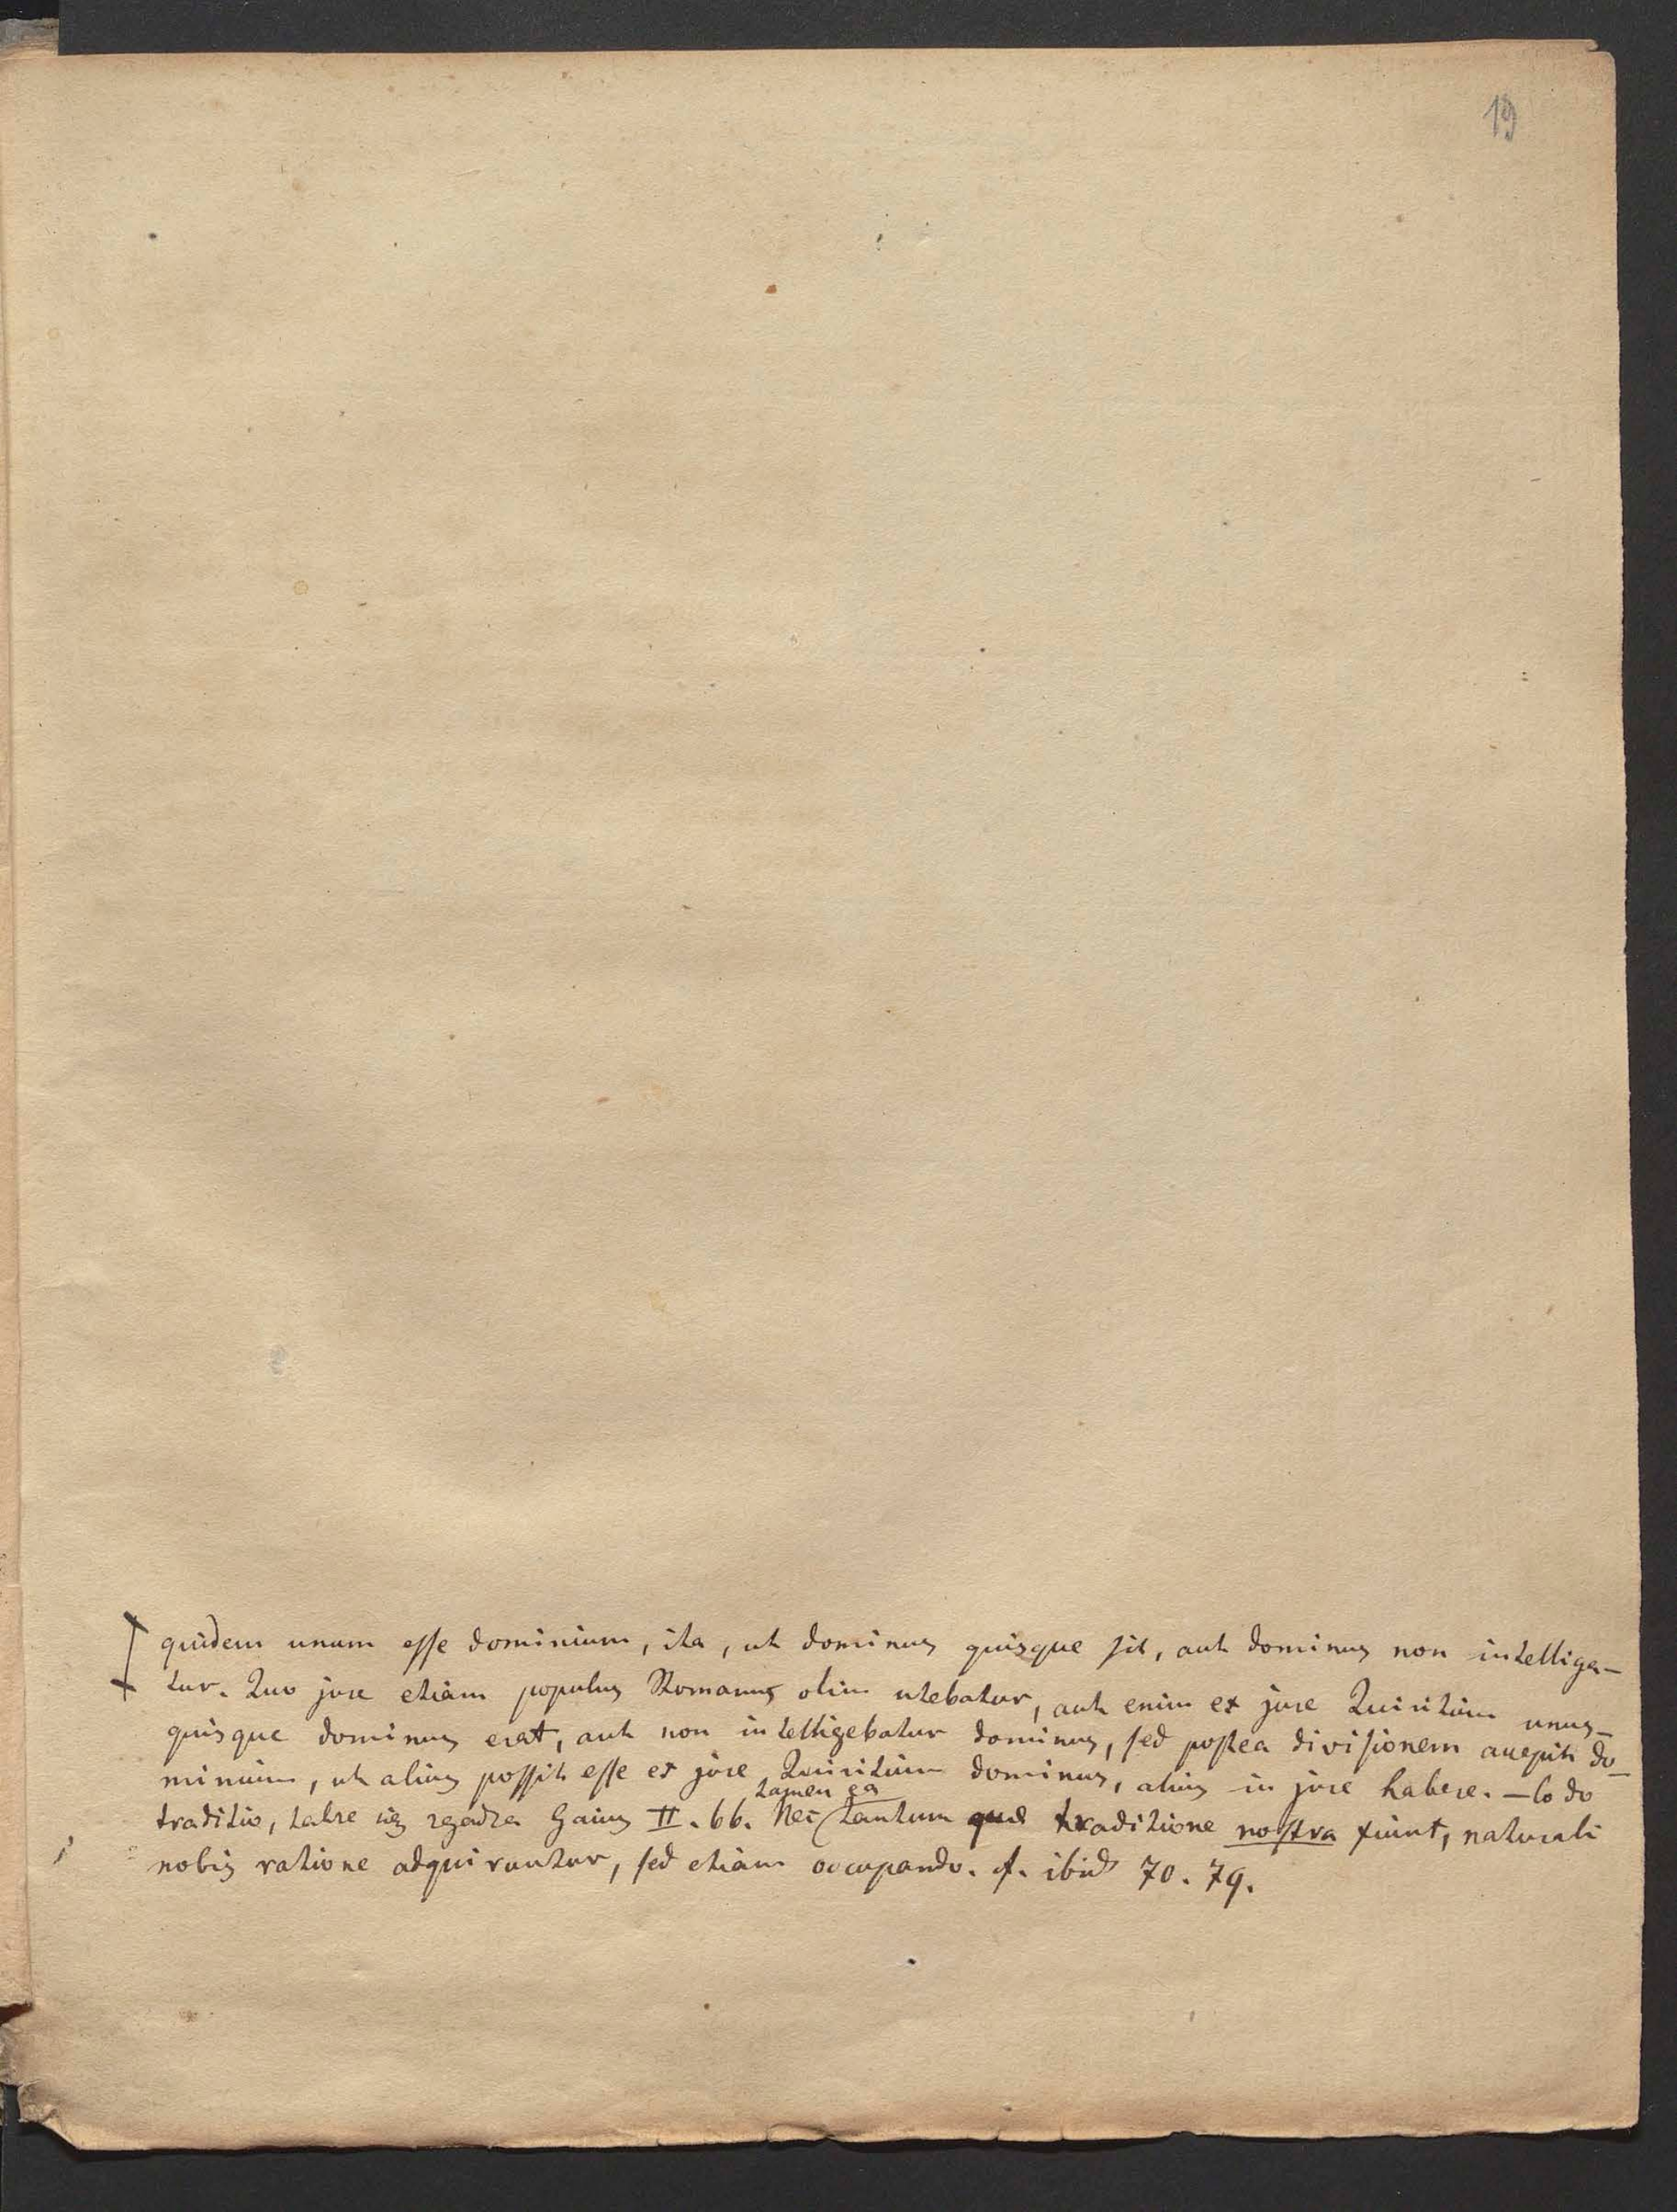 19
quidem unum esse dominium, ita, ut dominus quisque sit, aut dominus non intelliga-
tur. Quo jure etiam populus Romanus olim utebatur, aut enim ex jure Quiritium unus-
quisque dominus erat, aut non intelligebatur dominus, sed postea divisionem accepit do-
minium, ut alius possit esse ex jure Quiritium dominus, alius in jure habere. — Co do
tamen ea
traditio, także Gaius II. 66. Nec tantum quae traditione nostra fiunt, naturali
nobis ratione adquiruntur, sed etiam occupando. cf. ibid 70. 79.